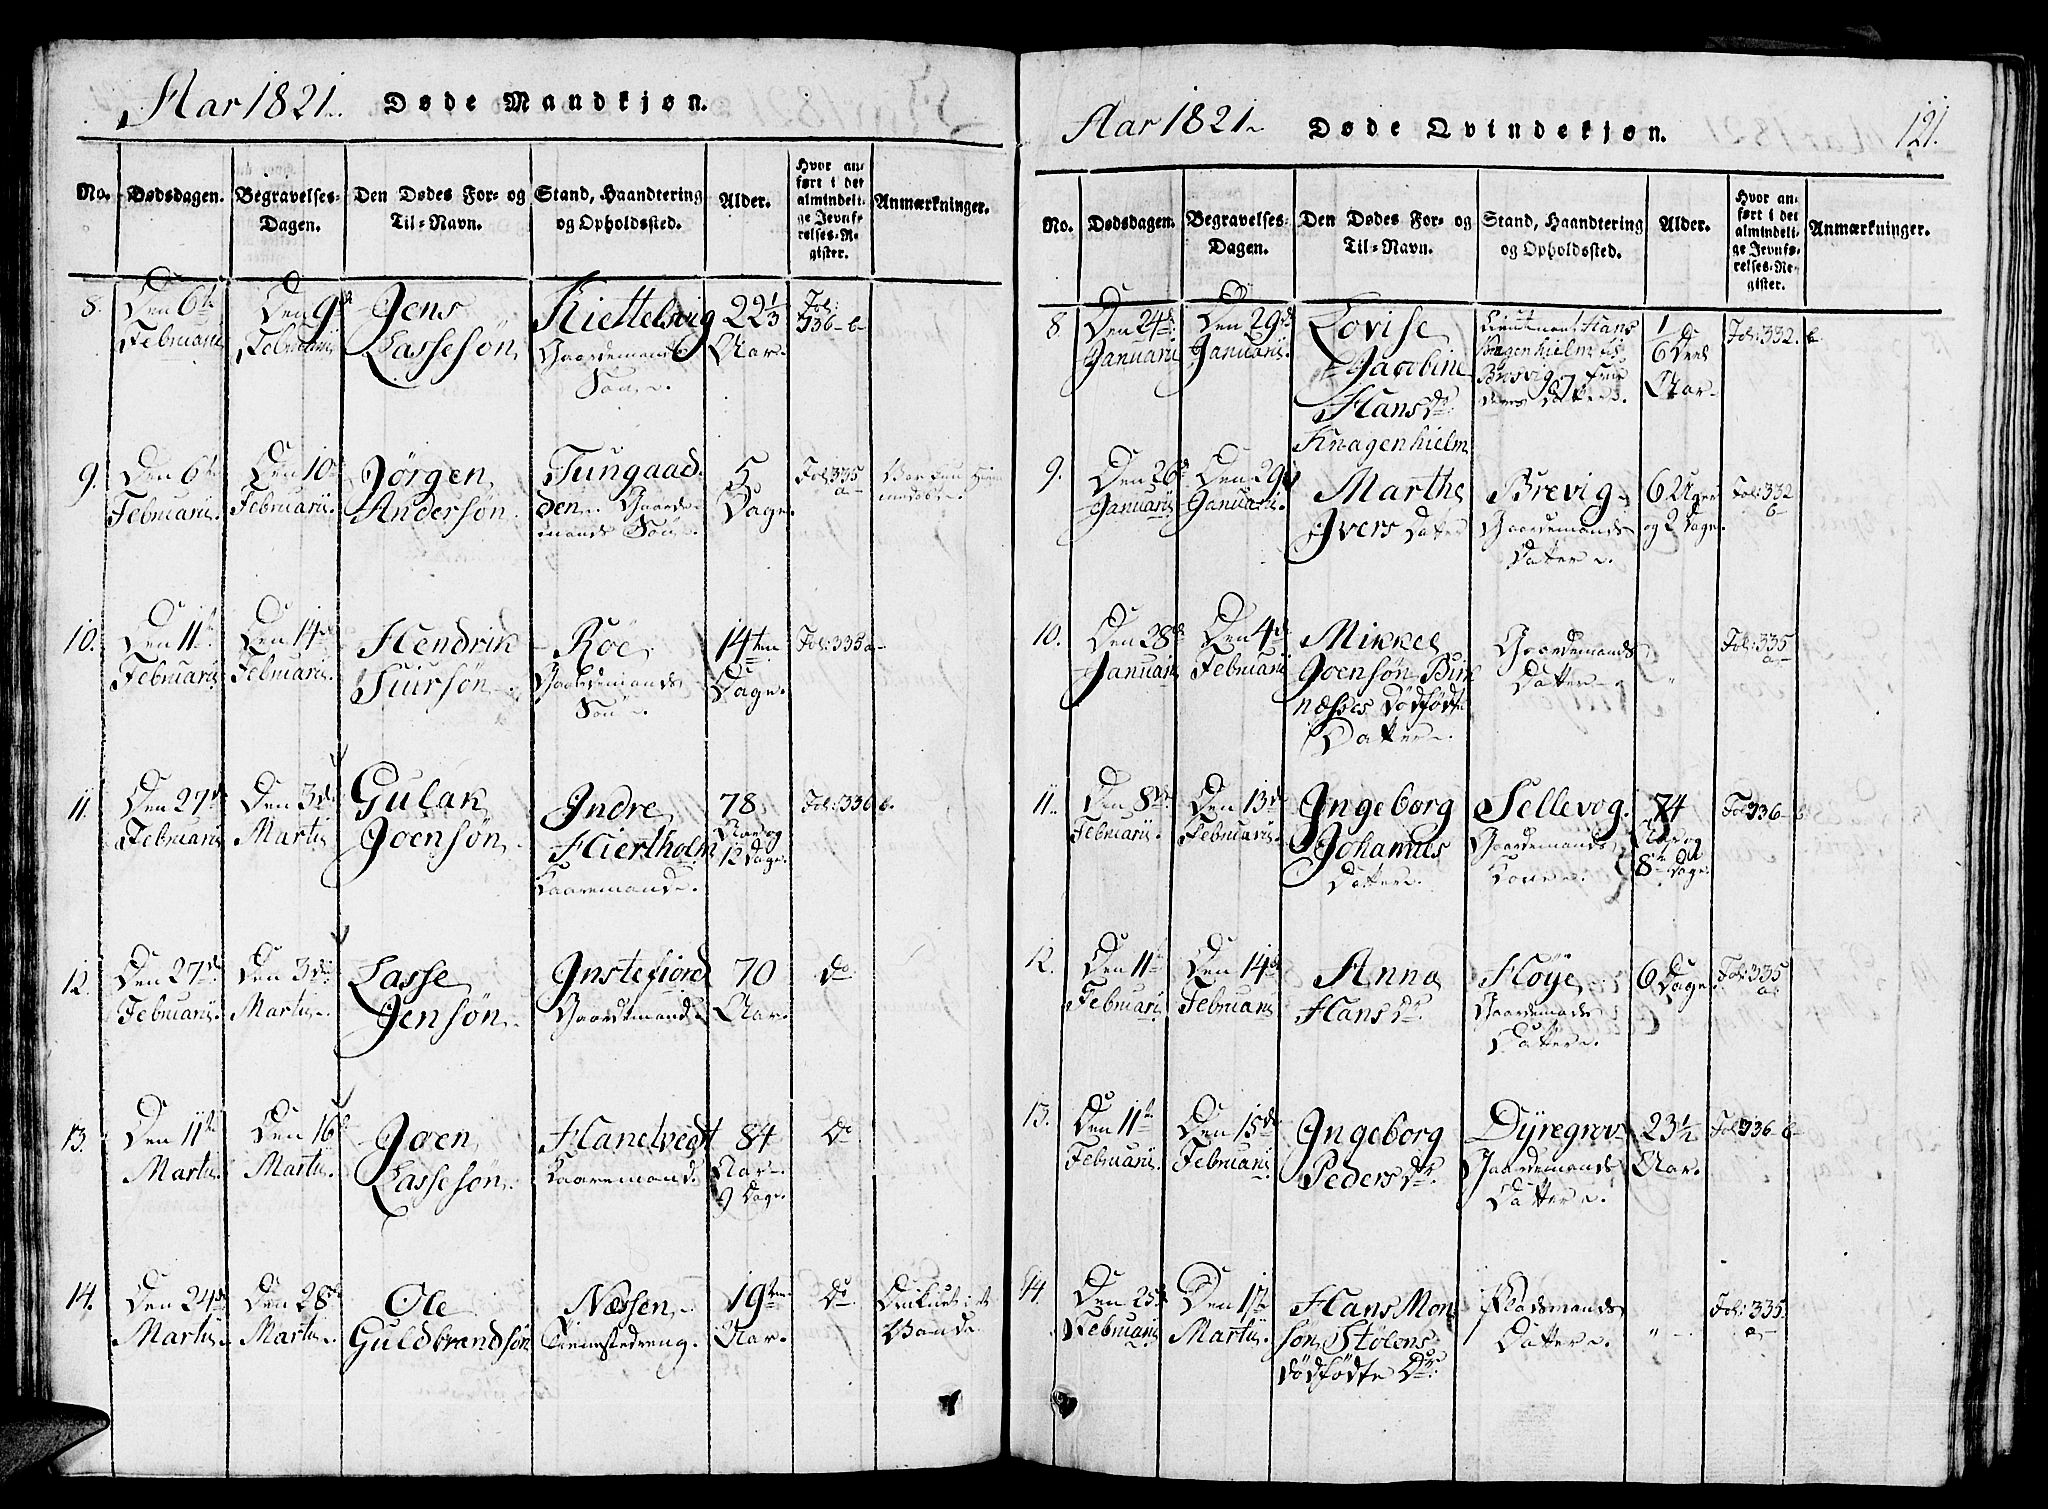 Aar 1821. Døde Mandkjøn.
No. Dødsdagen. Begravelses-Dagen. Den Dødes For- og Til-Navn. Stand, Haandtering og Opholdssted. Alder. Hvor anført i det almindelige Jevnførelses-Register. Anmærkninger.
8. Den 6te Februarii Den 9de Februarii Jens Lassesøn Kiettelsvig Gaardemands Søn 22 1/3 Aar. Fol: 336 b
9. Den 6te Februarii. Den 10de Februarii. Jørgen Andersøn Tungaadden. Gaardemands Søn. 5 Dage. Fol: 335 a
10. Den 11te Februarii Den 14de Februarii. Hendrik Siursøn Röe Gaardemands Søn. 14ten Dage. Fol: 335 a
11. Den 27de Februarii Den 3die Martii Gulak Joensøn Indre Hiertholm Kaaremand. 78 Aar og 12 Dage. Fol: 336 b.
12. Den 27de Februarii. Den 3die Martii. Lasse Jensøn. Instefiord Gaardemand 70 Aar. do
13. Den 11te Martii. Den 16de Martii. Joen Lassesøn. Hanelvedt Kaaremand 84 Aar 9 Dage. Do
14. Den 24de Martii. Den 28de Martii. Ole Guldbrandsøn Næssen Tienestedreng. 19ten Aar. Do. Druknet i et Vande
Aar 1821 Døde Qvindekjøn. 121.
No. Dødsdagen. Begravelses-Dagen. Den Dødes For- og Til-Navn. Stand, Haandtering og Opholdssted. Alder. Hvor anført i det almindelige Jevnførelses-Register. Anmærkninger.
8. Den 24de Januarii Den 29de Januarii. Lovise Jacobine Hans Dr. Knagenhielm Lieutnant Hans Knagenhielm Brosvig og Datter. 1/6 Deel Aar Fol: 332. b
9. Den 26de Januarii Den 29de Januarii. Marthe Ivers Datter Brevig Gaardemands Datter. 6 Uger og 2 Dage. Fol: 332 b
10. Den 28de Januarii Den 4de Februarii Mikkel Joensøn Birknæsses Dödfödte Datter. Gaardemands Datter " Fol: 335 a
11. Den 8de Februarii. Den 13de Februarii. Ingeborg Johannes Datter. Sellevog. Gaardemands Kone. 74 Aar og 8te Dage Fol: 336 b
12. Den 11te Februarii Den 14de Februarii Anna Hans Dr. Höye Gaardemands Datter. 6 Dage Fol: 335 a
13. Den 11te Februarii. Den 15de Februarii Ingeborg Peders Dr. Dyregrov Gaardemands Datter. 23 1/2 Aar. Fol: 336 b
14. Den 25de Februarii Den 1ste Martii. Hans Monsøn Stolens dödfödte Dr. Pladsmands Datter. " Fol: 335. a